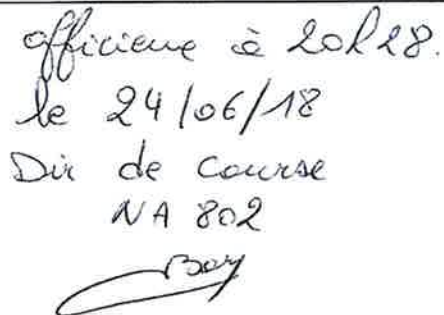 officieux à 20h28.
le 24/06/18
Dir de course
NA 802